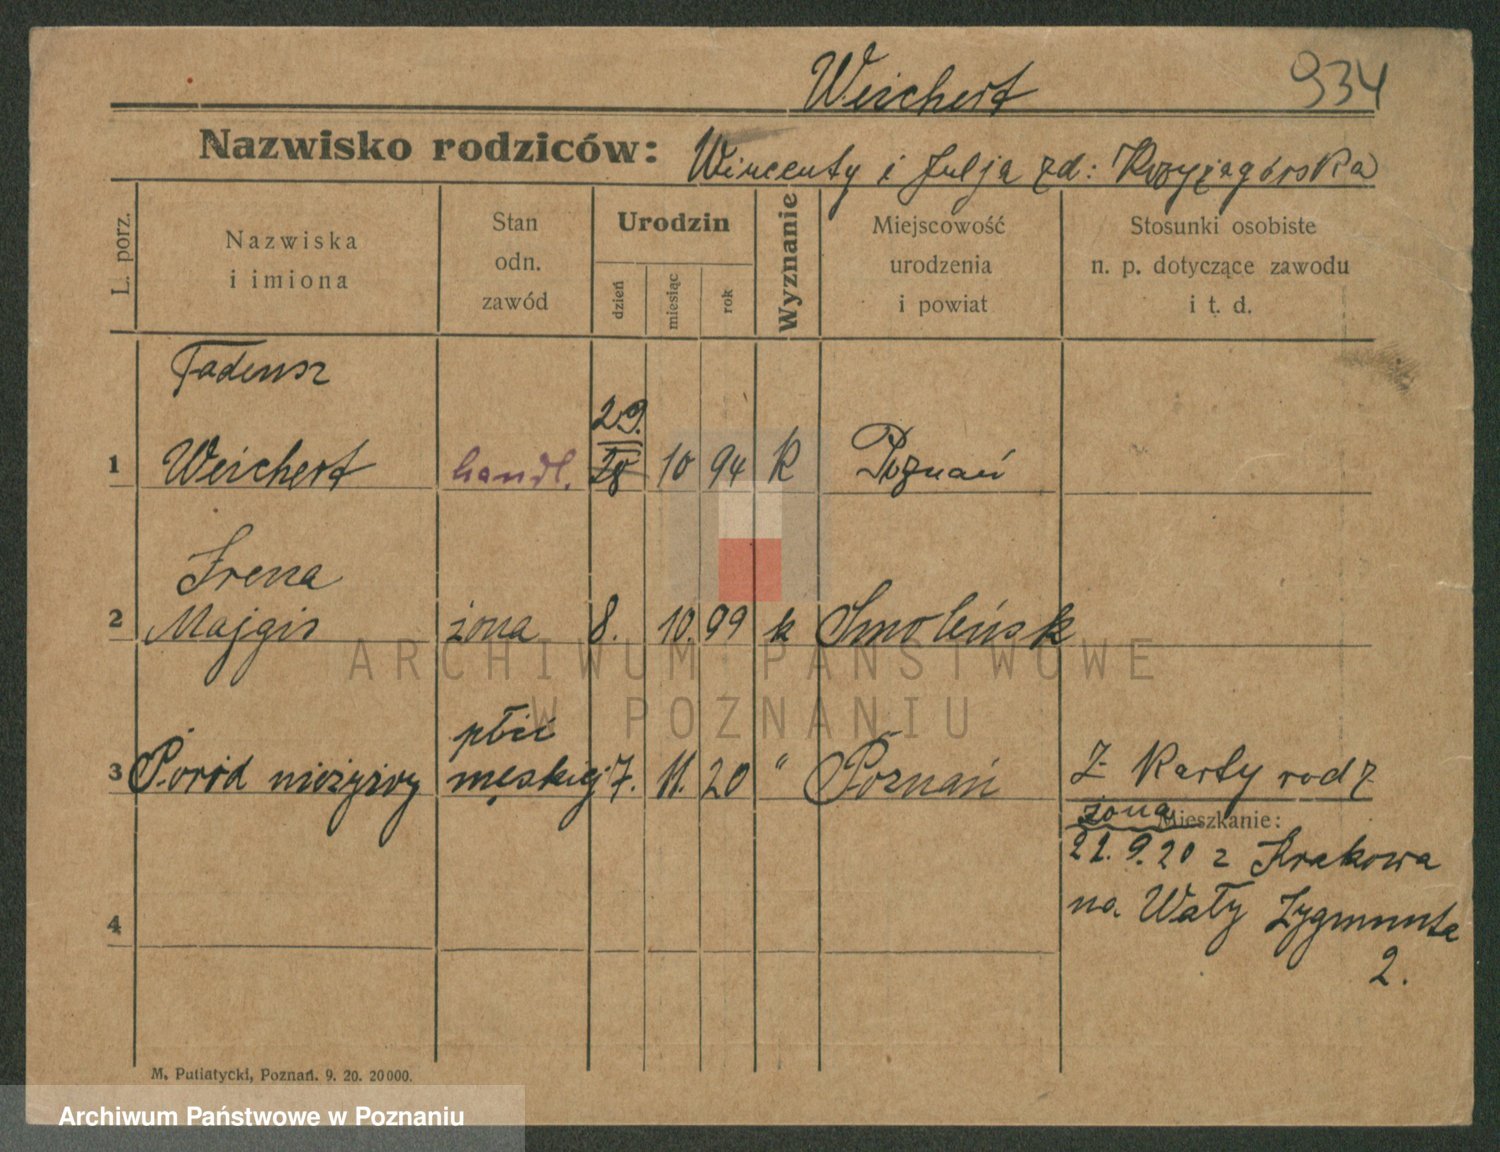 Weichert 934
Nazwisko rodziców: Wincenty i Julja zd: Krzyżagórska
L. porz.
Nazwiska
i imiona
Stan
odn.
zawód
Urodzin
dzień
miesiąc
rok
Wyznanie
Miejscowość
urodzenia
i powiat
Stosunki osobiste
n. p. dotyczące zawodu
i t. d.
Tadeusz
29.
1 Weichert handl. 28 10 94 K Poznań
Irena
2 Majgis żona 8. 10. 99 k Smoleńsk
płci
3 Poród nieżywy męskiej 7. 11. 20 " Poznań Z Karty rodz
żona Mieszkanie:
21. 9. 20 z Krakowa
na. Wały Zygmunta
2.
4
M. Putiatycki, Poznań. 9. 20. 20000.
ARCHIWUM PAŃSTWOWE
W POZNANIU
Archiwum Państwowe w Poznaniu